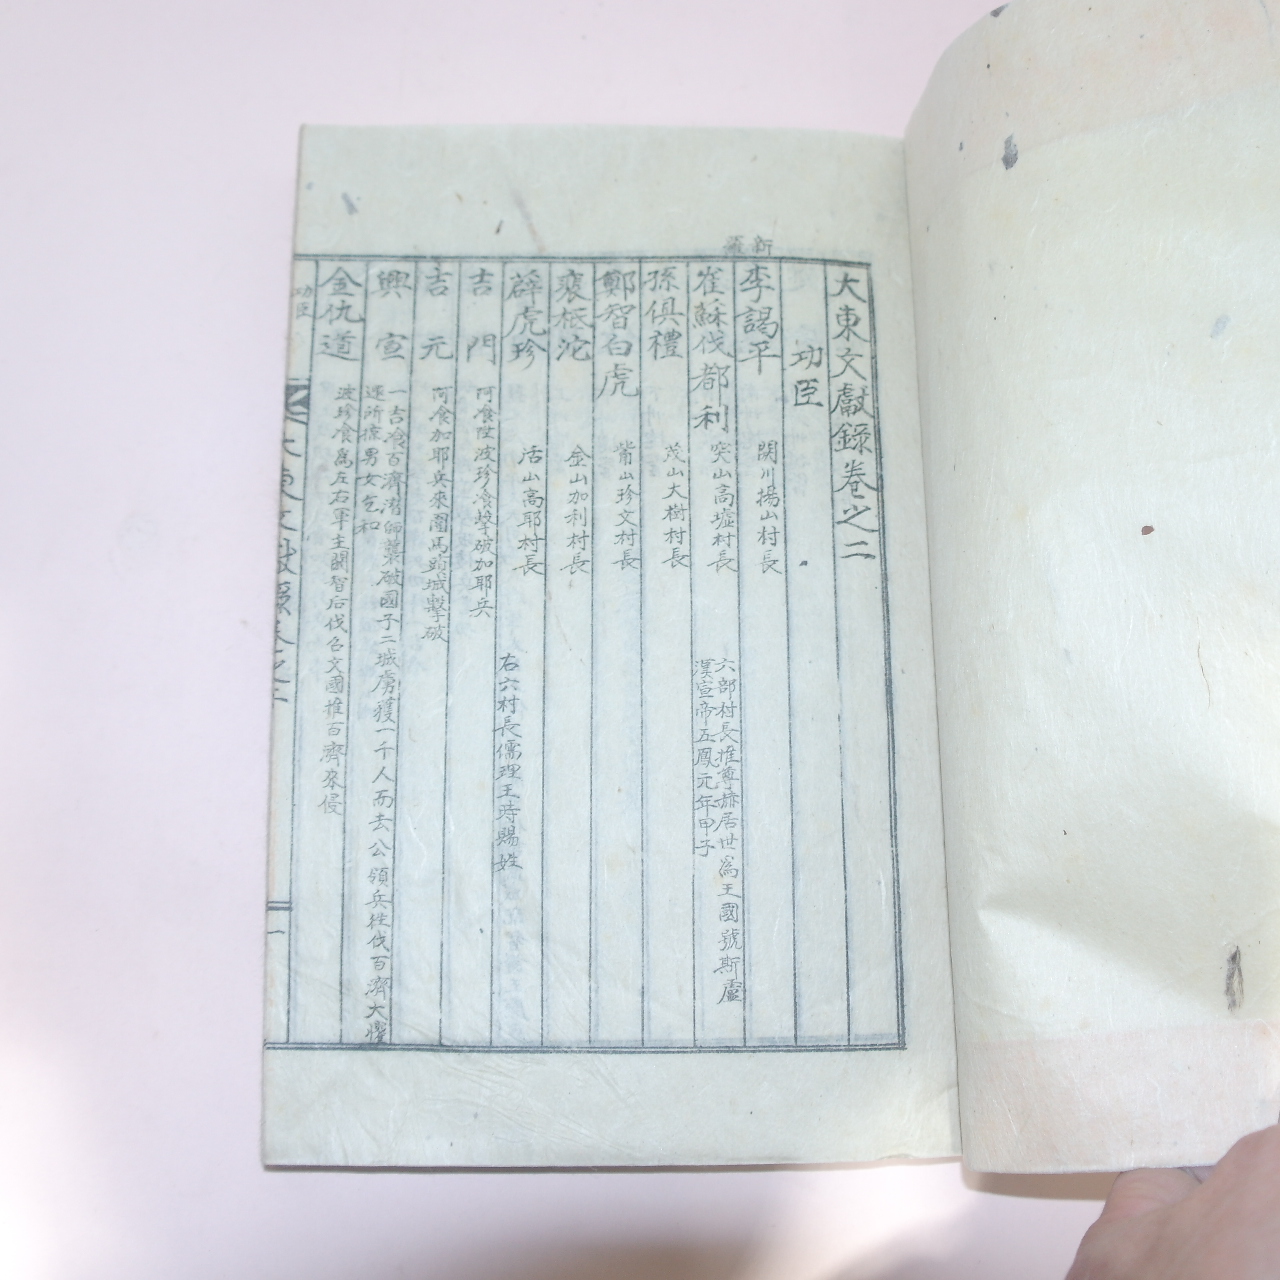 大東文獻錄卷之二
功臣
新羅
李謁平 閼川揚山村長
崔蘇伐都利 突山高墟村長 六部村長推尊赫居世爲王國號斯盧
漢宣帝五鳳元年甲子
孫俱禮 茂山大樹村長
鄭智白虎 觜山珍文村長
裵柢沱 金山加利村長
薛虎珍 活山高耶村長 右六村長儒理王時賜姓
吉門 阿飡陞波珍飡擊破加耶兵
吉元 阿飡加耶兵來圍馬頭城擊破
興宣 一吉飡百濟潛師襲破國子二城虜獲一千人而去公領兵往伐百濟大懼
還所掠男女乞和
金仇道 波珍飡爲左右軍主閼智后伐召文國推百濟來侵
功臣
大東文獻錄卷之二
一